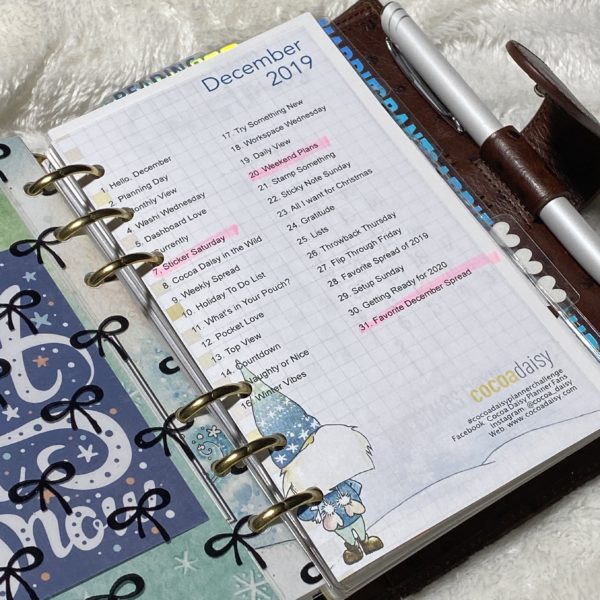 READING
December
2019
1. Hello, December
2. Planning Day
Monthly View
4. Washi Wednesday
5. Dashboard Love
Currently
7. Sticker Saturday
8. Cocoa Daisy in the Wild
9. Weekly Spread
10. Holiday To Do List
11. What's in Your Pouch?
12. Pocket Love
13. Top View
14. Countdown
Naughty or Nice
16. Winter Vibes
17. Try Something New
18. Workspace Wednesday
19. Daily View
20. Weekend Plans
21. Stamp Something
22. Sticky Note Sunday
23. All I want for Christmas
24. Gratitude
25. Lists
26. Throwback Thursday
27. Flip Through Friday
28. Favorite Spread of 2019
29. Setup Sunday
30. Getting Ready for 2020
31. Favorite December Spread
cocoadaisy
#cocoadaisyplannerchallenge
Facebook: Cocoa Daisy Planner Fans
Instagram: @cocoa_daisy
Web: www.cocoadaisy.com
Snow